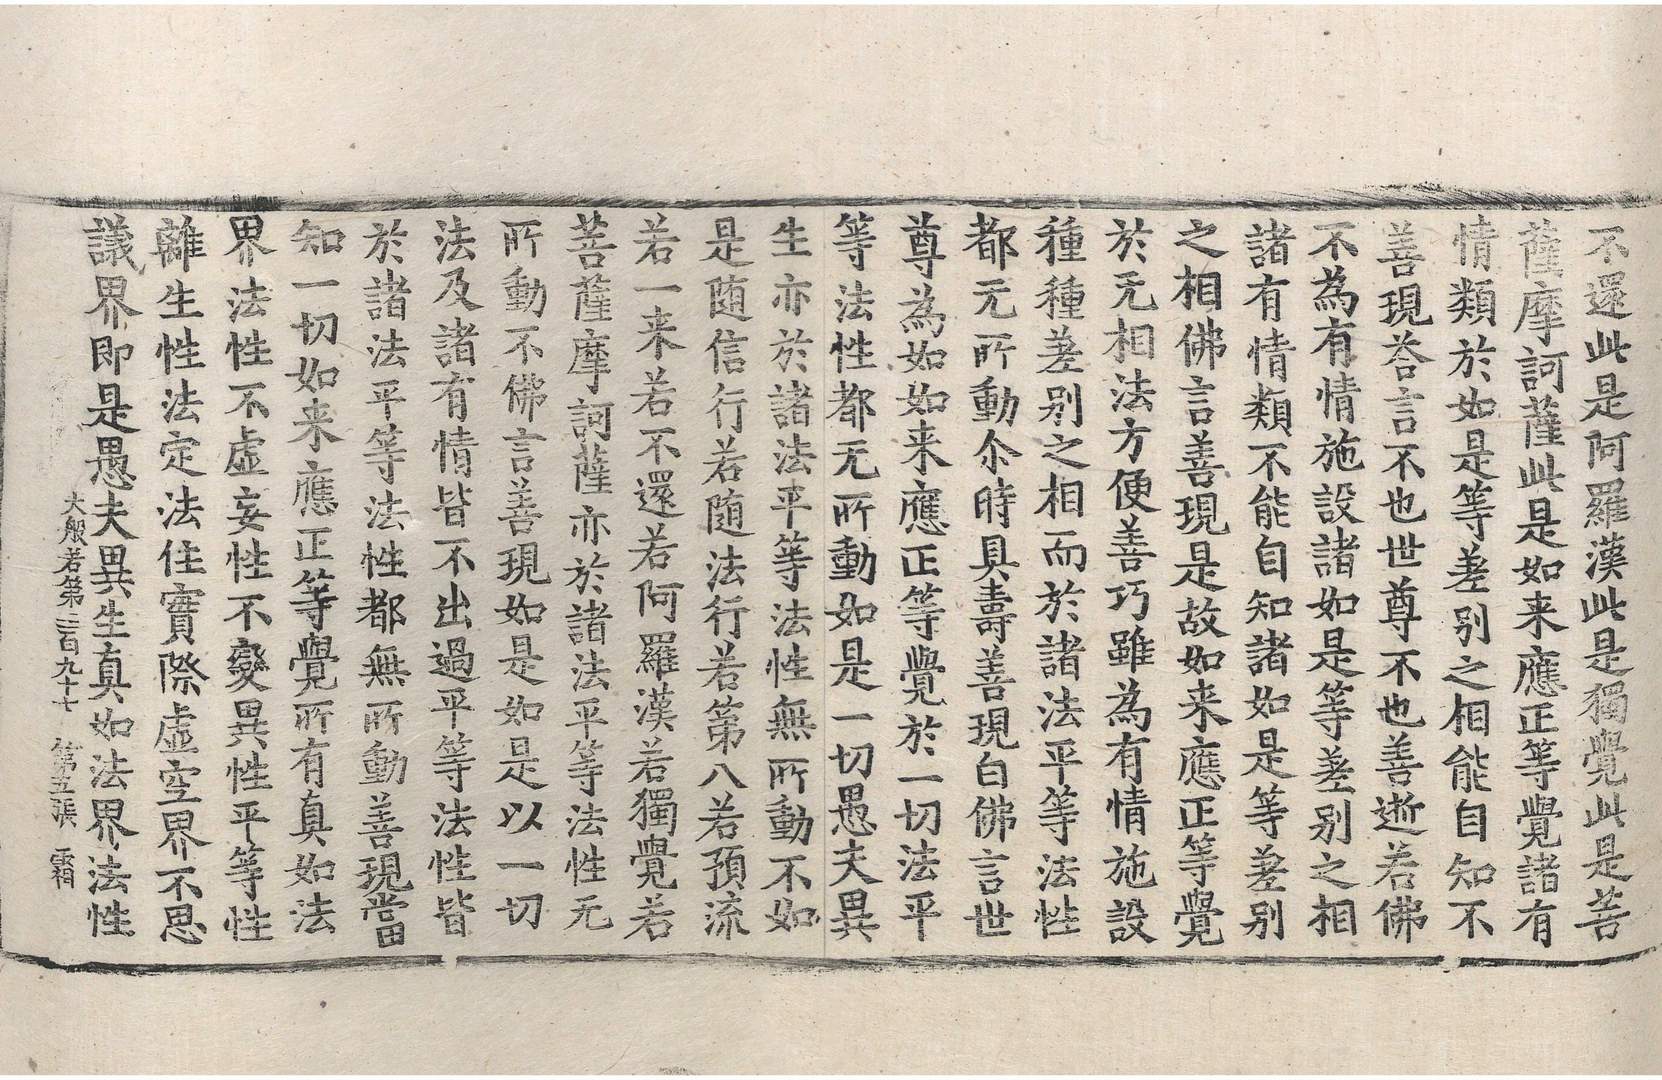 不還此是阿羅漢此是獨覺此是菩
薩摩訶薩此是如来應正等覺諸有
情類於如是等差别之相能自知不
善現荅言不也世尊不也善逝若佛
不為有情施設諸如是等差别之相
諸有情類不能自知諸如是等差别
之相佛言善現是故如来應正等覺
於无相法方便善巧雖為有情施設
種種差别之相而於諸法平等法性
都无所動尒時具壽善現白佛言世
尊為如如来應正等覺於一切法平
等法性都无所動如是一切愚夫異
生亦於諸法平等法性無所動不如
是随信行若随法行若第八若預流
若一来若不還若阿羅漢若獨覺若
菩薩摩訶薩亦於諸法平等法性无
所動不佛言善現如是如是以一切
法及諸有情皆不出過平等法性皆
於諸法平等法性都無所動善現當
知一切如来應正等覺所有真如法
界法性不虛妄性不變異性平等性
離生性法定法住實際虛空界不思
議界即是愚夫異生真如法界法性
大般若第三百九十七　第五張　霜